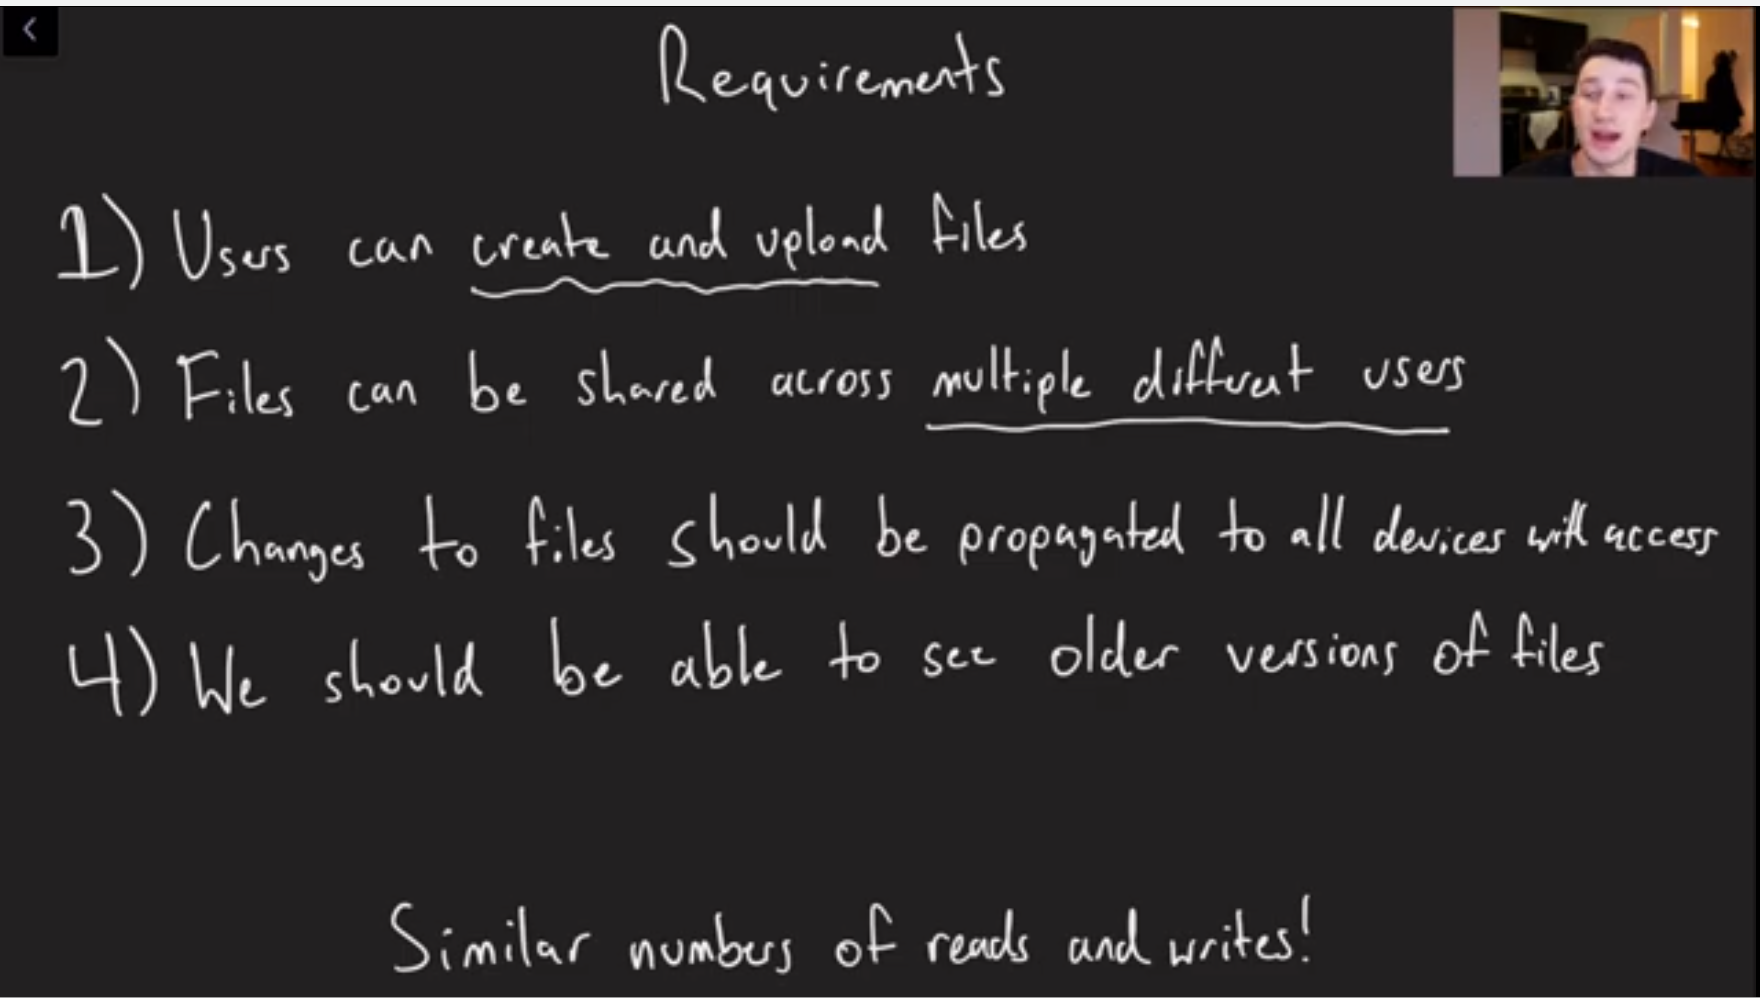 Requirements
1) Users can create and upload files
2) Files can be shared across multiple different users
3) Changes to files should be propagated to all devices with access
4) We should be able to see older versions of files
Similar numbers of reads and writes!